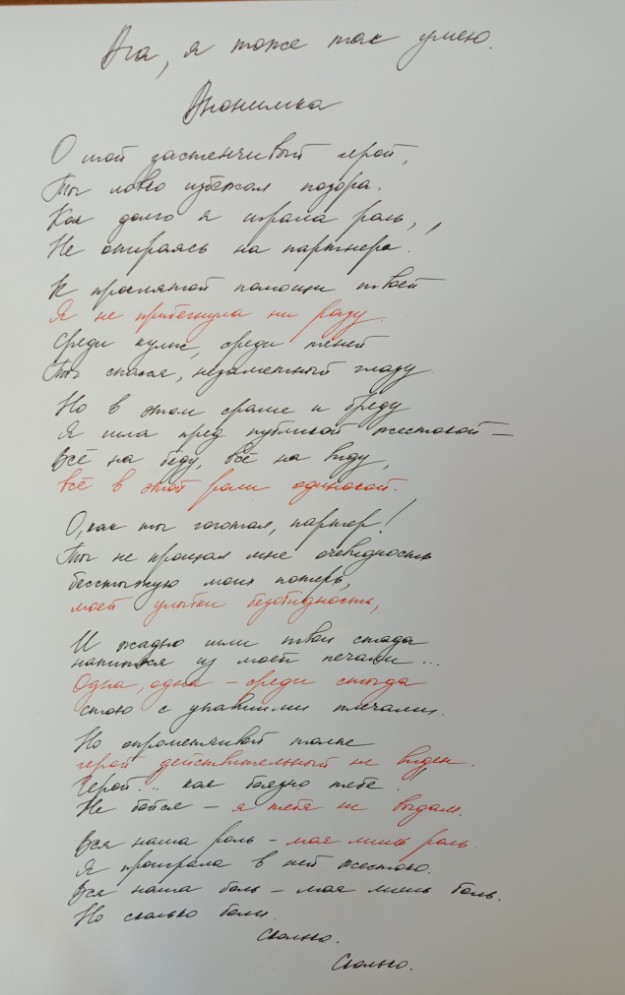 Ага, я тоже так умею.
Анонимка
О мой застенчивый герой,
Ты ловко избежал позора.
Как долго я играла роль,
Не опираясь на партнера.
К проклятой помощи твоей
Я не прибегнула ни разу.
Среди кулис, среди теней
Ты спасся, незаметный глазу.
Но в этом сраме и бреду
Я шла пред публикой жестокой –
Всё на беду, всё на виду,
всё в этой роли одинокой.
О, как ты гоготал, партер!
Ты не прощал мне очевидность
бесстыжую моих потерь,
моей улыбки безобидность,
И жадно шли твои стада
напиться из моей печали...
Одна, одна – среди стыда
стою с упавшими плечами.
Но опрометчивой толпе
герой действительный не виден.
Герой... как боязно тебе.
Не бойся – я тебя не выдам.
Вся наша роль – моя лишь роль.
Я проиграла в ней жестоко.
Вся наша боль – моя лишь боль.
Но сколько боли.
Сколько.
Сколько.